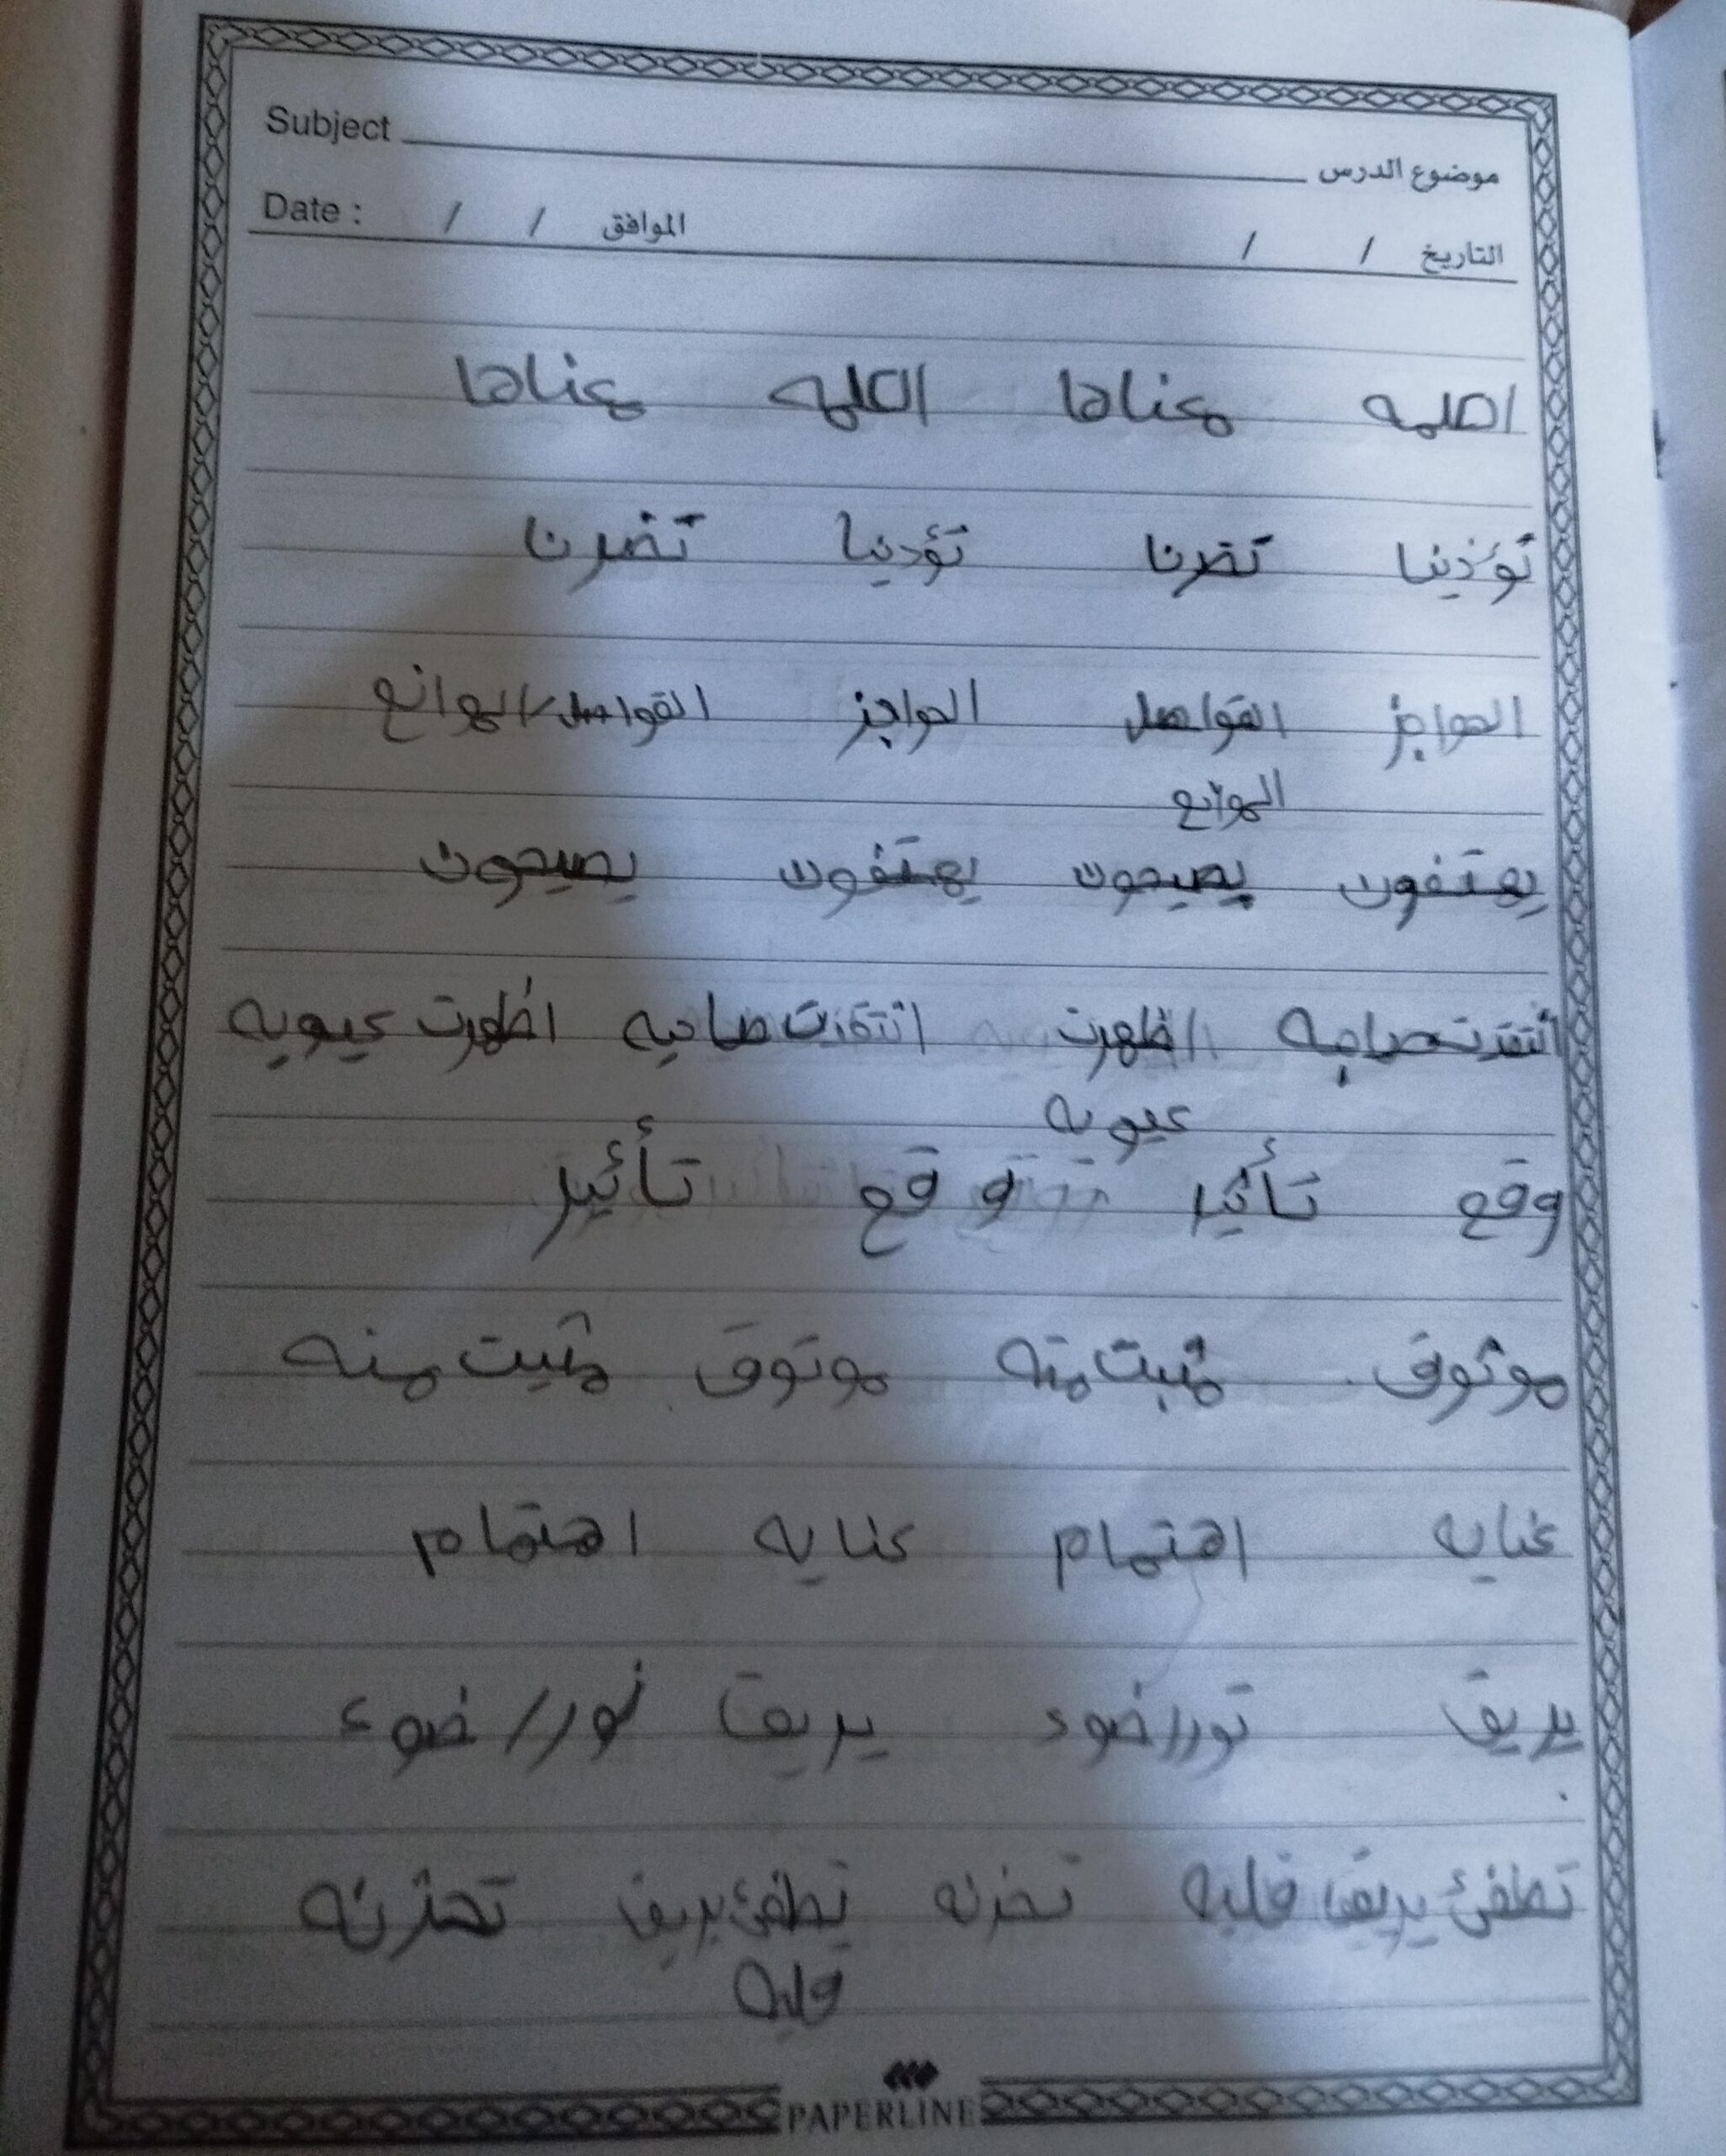 Subject موضوع الدرس
Date : / / الموافق / / التاريخ
اصلمه عناها الكلمه عناها
تؤذينا تضرنا تؤدنيا تضرنا
الحواجز القواصل الحواجز القواصل/الموانع
الموانع
يهتفون يصيحون يهتفون يصيحون
انتقدت صاحبه اظهرت انتقدت صاحبه اظهرت عيوبه
عيوبه
وقع تأثير وقع تأثير
موثوق مثبت منه موتوق مثبت منه
عنايه اهتمام عنايه اهتمام
بريق نور/ضوء بريق نور/ضوء
تطفئ بريق قلبه تحزنه تطفئ بريق تحزنه
قلبه
PAPERLINE